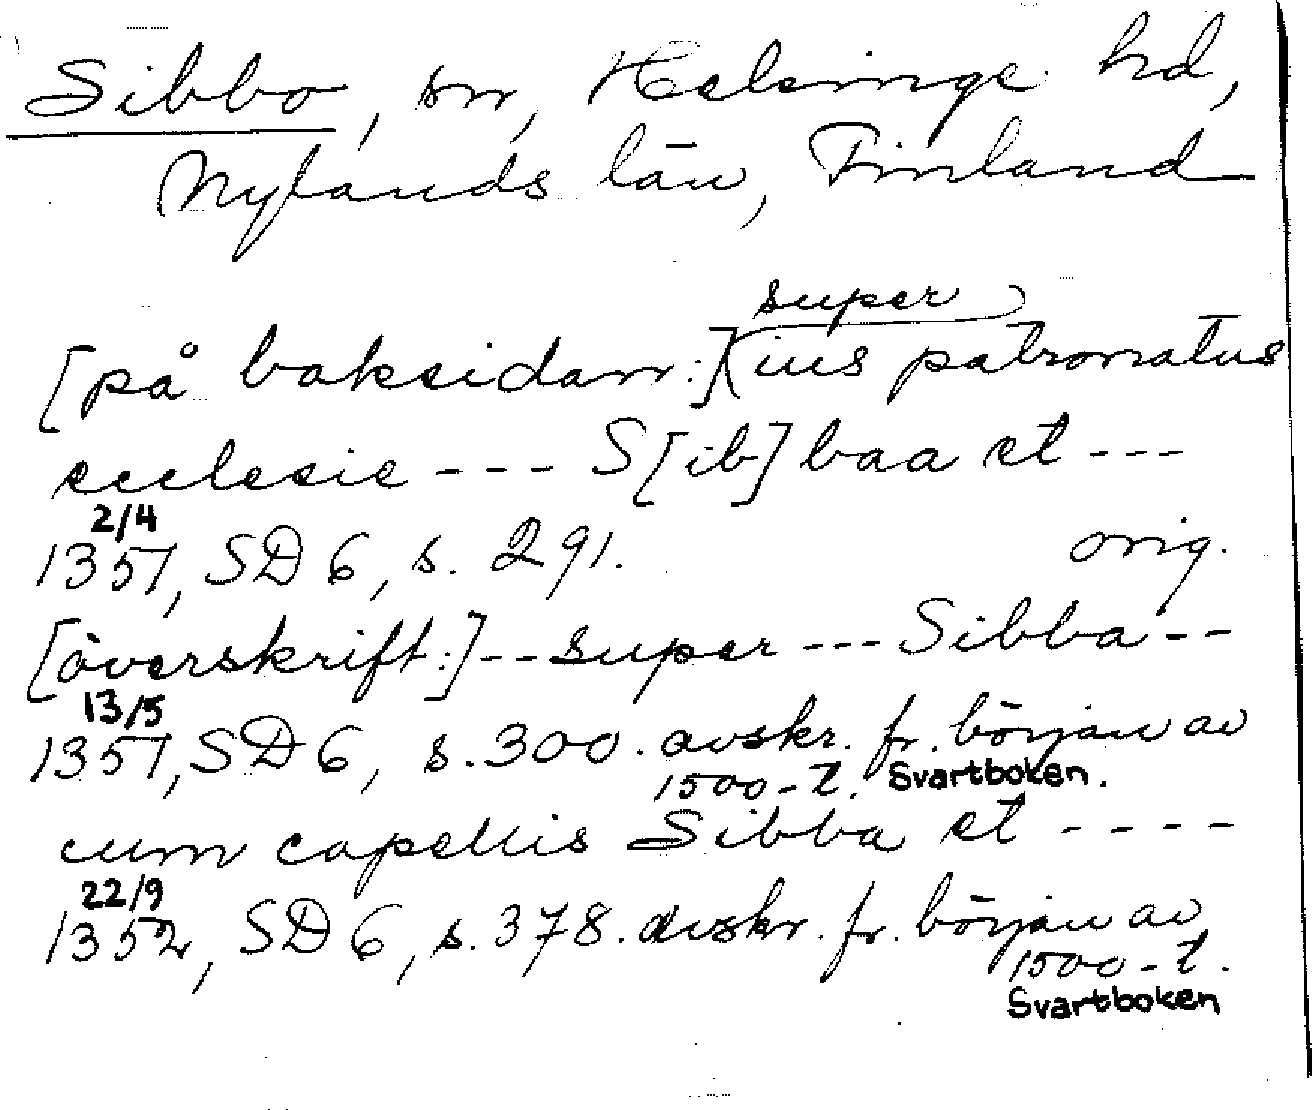 Sibbo, sn, Helsinge hd,
Nylands län, Finland
super
[på baksidan:] ius patronatus
ecclesie --- S[ib]baa et ---
2/4
1351, SD 6, s. 291. orig.
[överskrift:] -- super --- Sibba --
13/5
1351, SD 6, s. 300. avskr. fr. början av
1500-t. Svartboken.
cum capellis Sibba et ----
22/9
1352, SD 6, s. 378. avskr. fr. början av
1500-t.
Svartboken